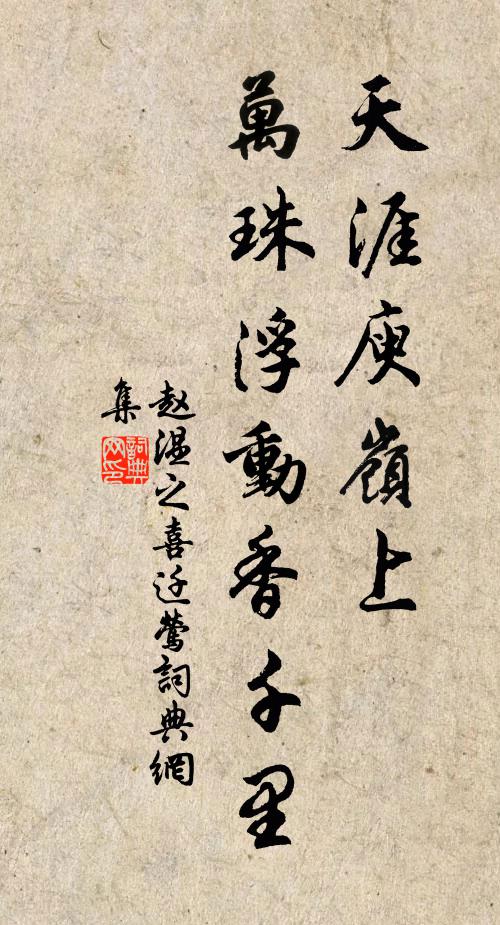 天涯庾嶺上
萬珠浮動香千里
赵温之喜迁莺詞典網
集
詞典
网印